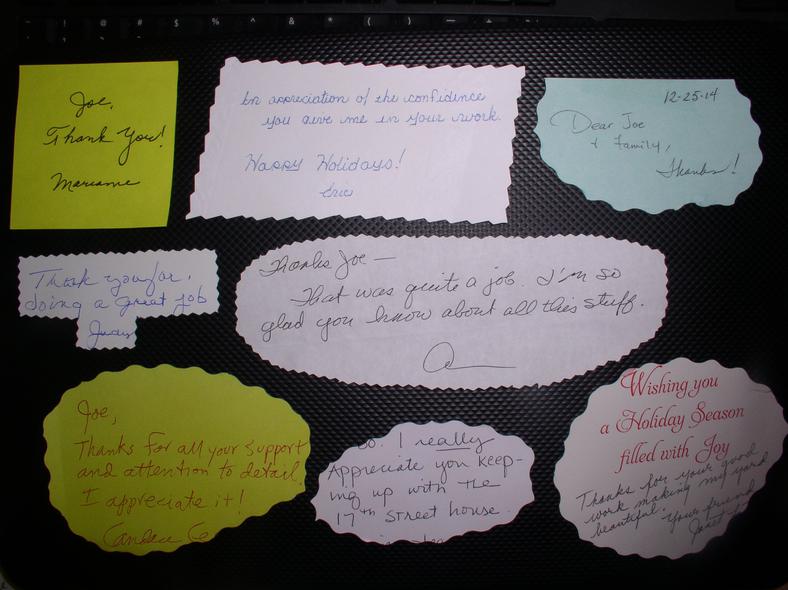 Joe,
Thank You!
Marianne
In appreciation of the confidence
you give me in your work.
Happy Holidays!
Eric
12-25-14
Dear Joe
+ Family,
Thanks!
Thank you for,
doing a great job
Judy
Thanks Joe —
That was quite a job. I'm so
glad you know about all this stuff.
Joe,
Thanks for all your support
and attention to detail.
I appreciate it!
Candace
So. I really
Appreciate you keep-
ing up with the
17th street house.
Wishing you
a Holiday Season
filled with Joy
Thanks for your good
work making my yard
beautiful.
Your friend
Janet